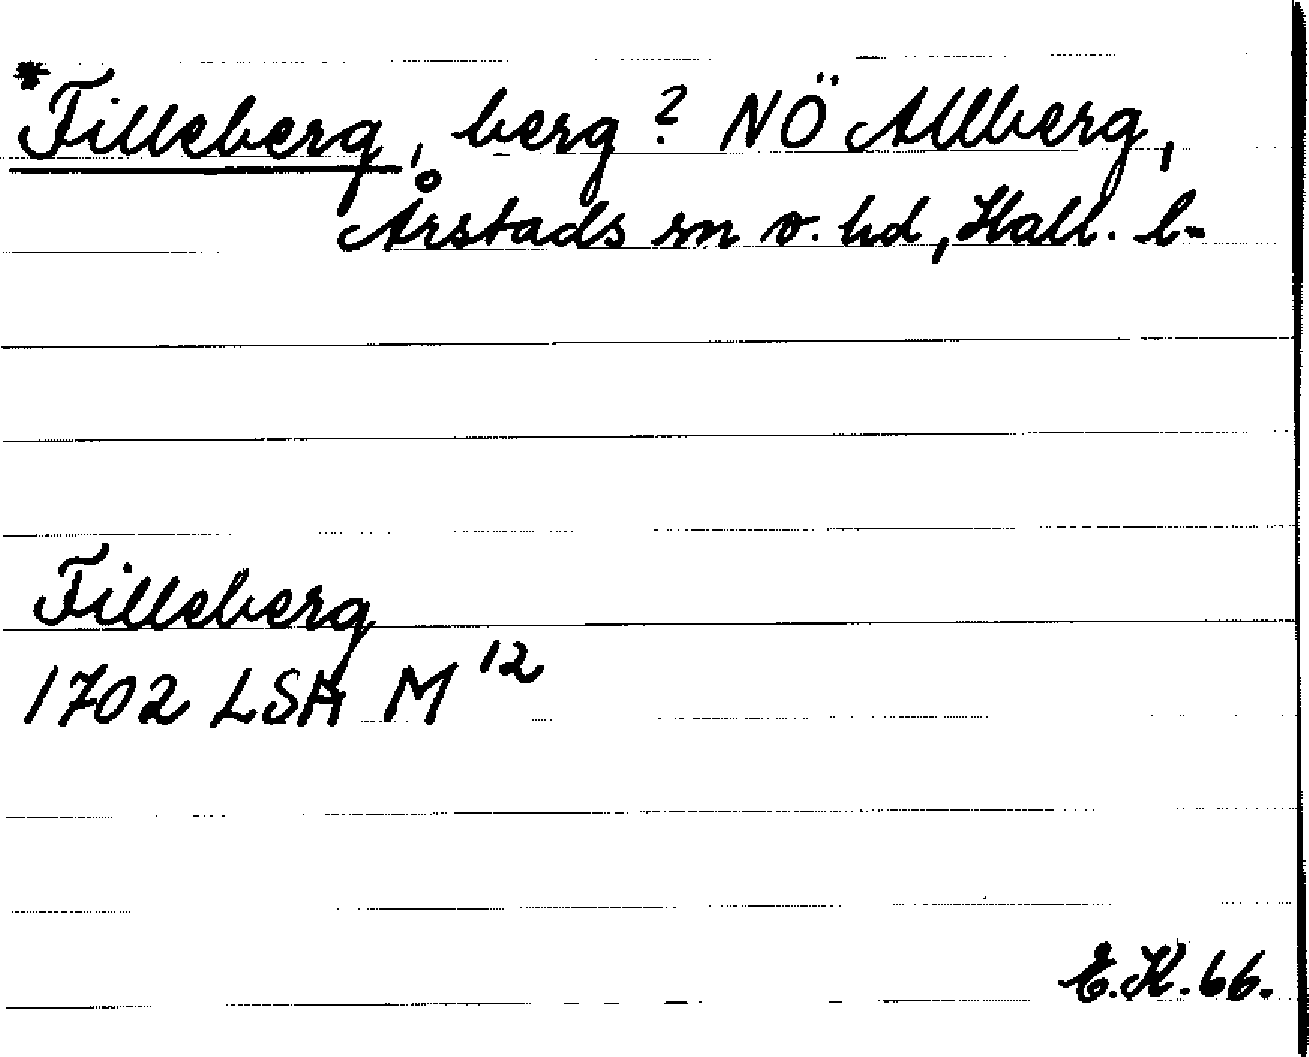 *Filleberg, berg? NÖ Allberg,
Årstads sn o. hd, Hall. l.
Filleberg
1702 LSA M 12
E.K. 66.